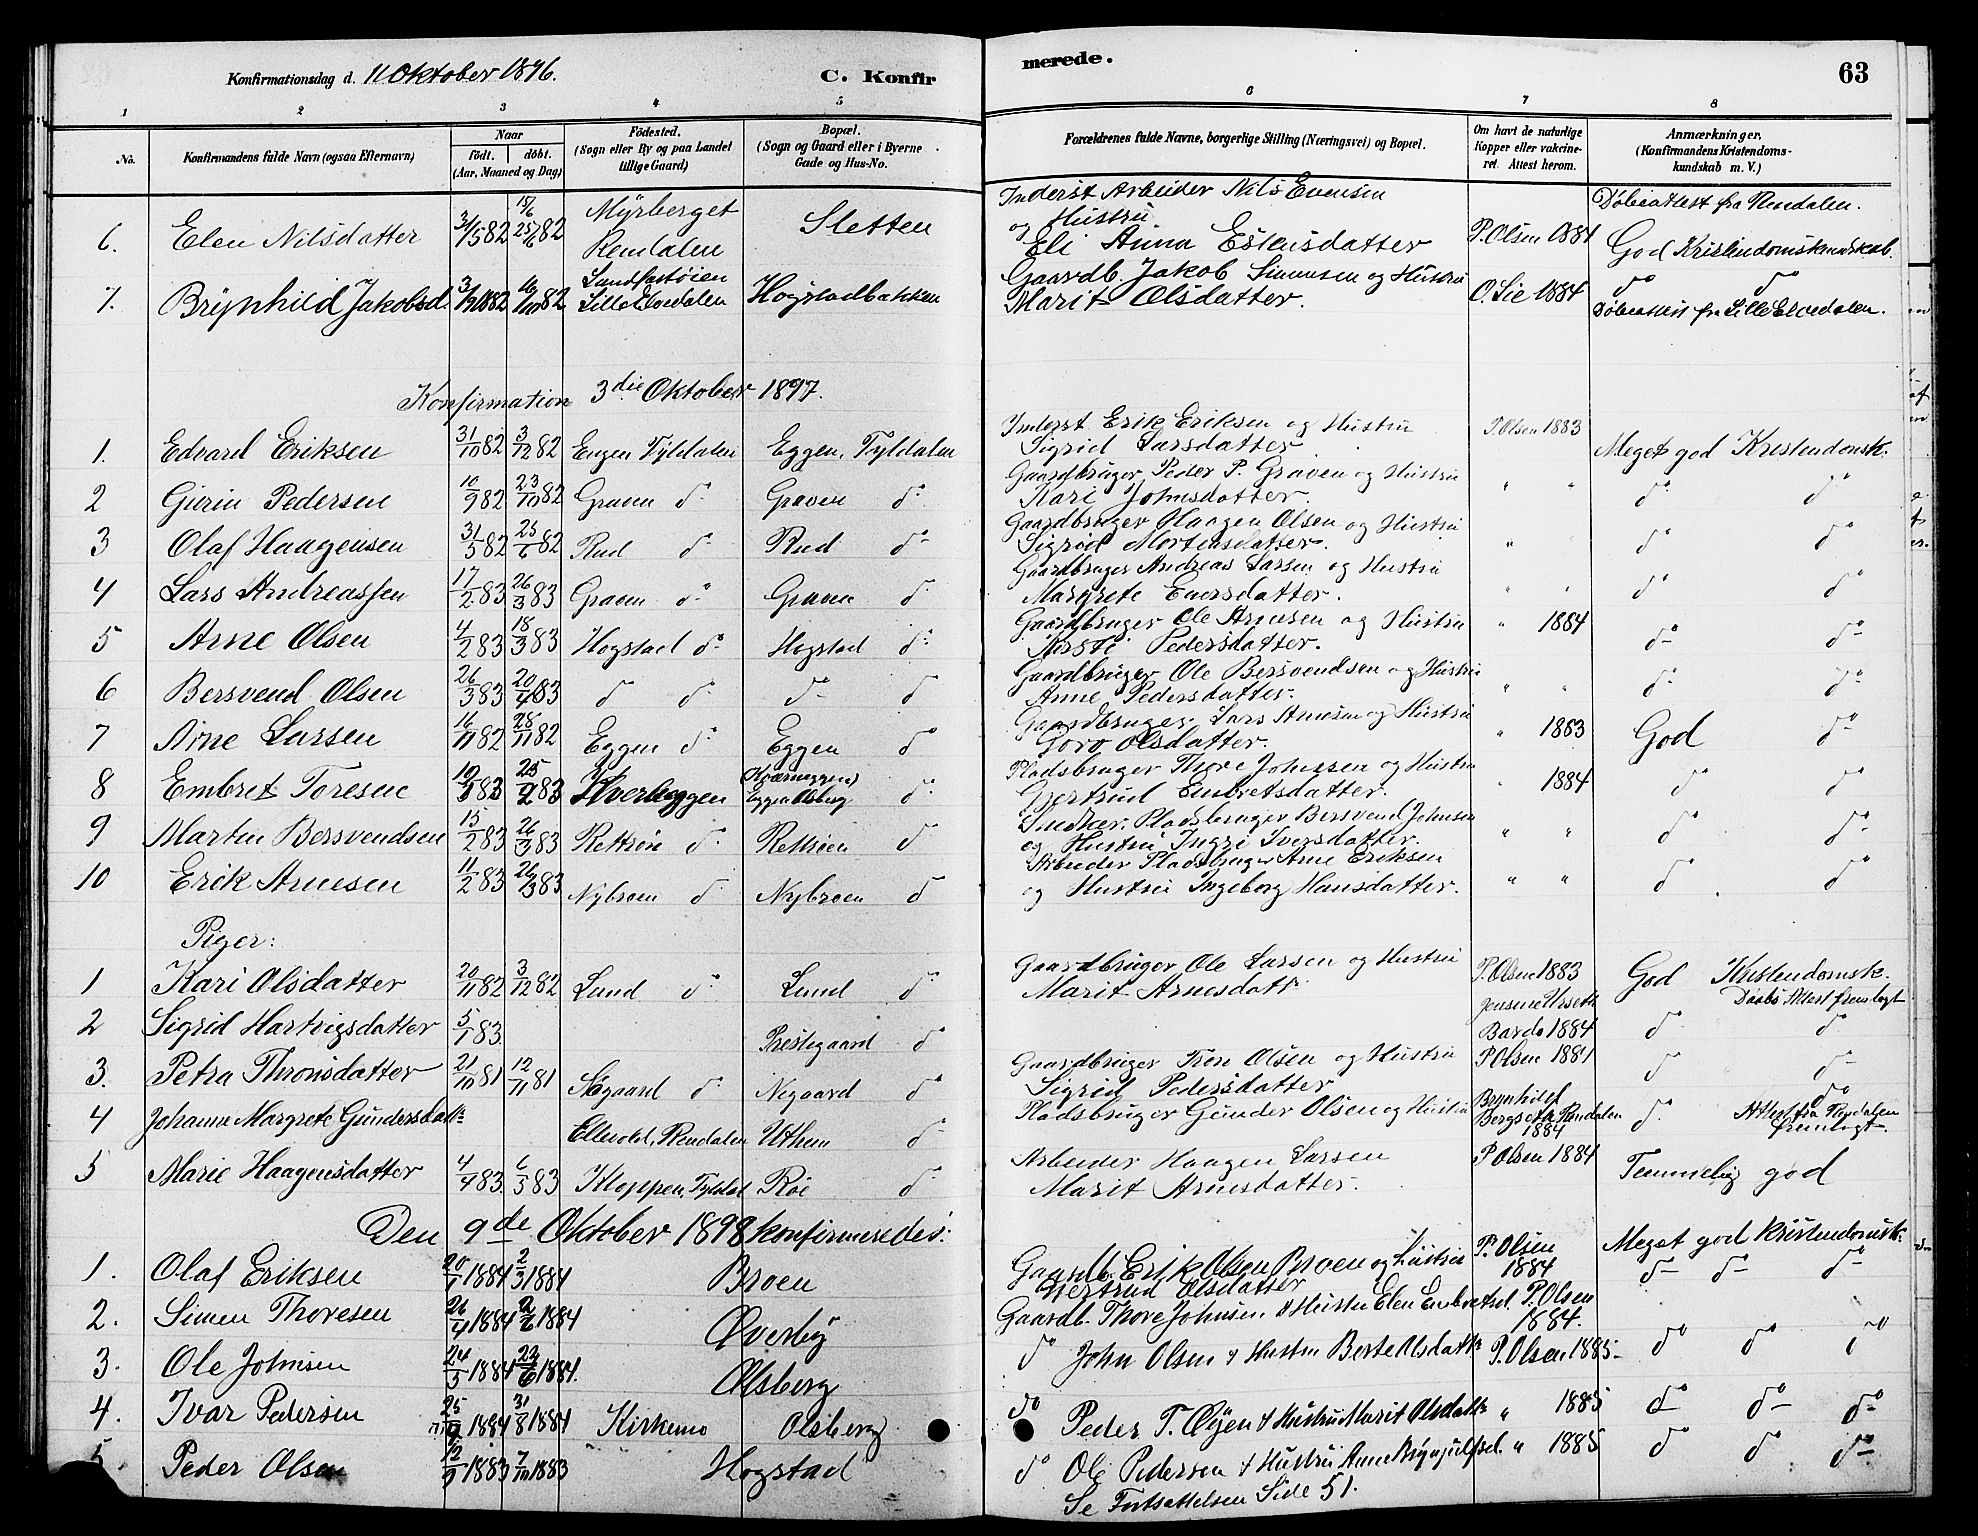 Konfirmationsdag d. 11 Oktober 1896.
C. Konfir
merede.
63
1 2 3 4 5 6 7 8
No.
Konfirmandens fulde Navn (ogsaa Efternavn)
Naar
født. døbt.
(Aar, Maaned og Dag)
Fødested.
(Sogn eller By og paa Landet
tillige Gaard)
Bopæl.
(Sogn og Gaard eller i Byerne
Gade og Hus-No.
Forældrenes fulde Navne, borgerlige Stilling (Næringsvei) og Bopæl.
Om havt de naturlige
Kopper eller vakcine-
ret. Attest herom.
Anmærkninger.
(Konfirmandens Kristendoms-
kundskab m. V.)
6. Elen Nilsdatter 82 25/6 82 Myrberget Rendalen Sletten Inderst Arbeider Nils Evensen og Hustru Eli Anna Estensdatter P. Olsen 1884 Døbeattest fra Rendalen. God Kristendomskundskab.
7. Brynhild Jakobsd. 1882 16/10 82 Sandfastøien Lille Elvedalen Hogstadbakken Gaardb. Jakob Simensen og Hustru Marit Olsdatter. O. Lie 1884 do do Døbeattest fra Lille Elvedalen.
Konfirmation 3die Oktober 1897.
1. Edvard Eriksen 31/10 82 3/12 82 Engen Tyldalen Eggen, Tyldalen Inderst Erik Eriksen og Hustru Sigrid Larsdatter P. Olsen 1883 Meget god Kristendomsk.
2 Gurin Pedersen 10/9 82 23/10 82 Graven do Graven do Gaardbruger Peder P. Graven og Hustru Kari Johnsdatter. " " do do
3 Olaf Haagensen 31/5 82 25/6 82 Rud do Rud do Gaardbruger Haagen Olsen og Hustru Sigrid Mortensdatter. " do do
4 Lars Andreassen 17/2 83 26/3 83 Graven do Graven do Gaardbruger Andreas Larsen og Hustru Margrete Enersdatter. " " do do
5 Arne Olsen 4/2 83 18/3 83 Hogstad do Hogstad do Gaardbruger Ole Arnesen og Hustru Kirsti Pedersdatter. " 1884 do do
6 Bersvend Olsen 26/3 83 20/4 83 do do do do Gaardbruger Ole Bersvendsen og Hustru Anne Pedersdatter. " " do do
7 Arne Larsen 16/11 82 28/11 82 Eggen do Eggen do Gaardbruger Lars Arnesen og Hustru Goro Olsdatter. " 1883 God do
8 Embret Toresen 83 25/2 83 Kverneggen (Kværneggen) Eggen Olsberg do Pladsbruger Thore Johnsen og Hustru Gjertrud Embretsdatter. " 1884 do do
9 Martin Bersvendsen 15/2 83 26/3 83 Rettrøen do Rettrøen do Snedker. Pladsbruger Bersvend Johnsen og Hustru Ingri Iversdatter. " " do do
10 Erik Arnesen 11/2 83 26/3 83 Nybroen do Nybroen do Arbeider Pladsbruger Arne Eriksen og Hustru Ingeborg Hansdatter. " " do do
Piger:
1 Kari Olsdatter 20/11 82 3/12 82 Lund do Lund do Gaardbruger Ole Larsen og Hustru Marit Arnesdatt. P. Olsen 1883 God Kristendomsk.
2 Sigrid Hartvigsdatter 5/1 83 Prestegaard do Jensine Urseth Bardo 1884 Daabs Attest fremlagt do do
3. Petra Thronsdatter 21/10 81 12/11 81 do Negaard do Gaardbruger Tron Olsen og Hustru Sigrid Pedersdatter P Olsen 1881 do do
4 Johanne Margrete Gundersdatt. Rendalen Uthun do Pladsbruger Gunder Olsen og Hustru Brynhild Bergseth Rendalen 1884 do do Attest fra Rendalen fremlagt.
5 Marie Haagensdatter 4/4 83. 6/5 83 Kloppen, Tyldal Røe do Arbeider Haagen Larsen Marit Arnesdatter. P Olsen 1884 Temmelig god
Den 9de Oktober 1898 konfirmeredes:
1. Olaf Eriksen 20/1 1884 2/3 1884 Broen Gaardb. Erik Olsen Broen og Hustru Gjertrud Olsdatter P. Olsen 1884 Meget god Kristendomsk. do do do
2. Simen Thoresen 26/4 1884 2/6 1884 Øverby Gaardb. Thore Johnsen & Hustru Elen Embretsd. P. Olsen 1884.
3. Ole Johnsen 24/5 1884 22/6 1884. Olsberg do John Olsen & Hustru Berte Olsdatt. P. Olsen 1885 do do do
4. Ivar Pedersen 1884 31/8 1884 Kirkemo Olsberg do Peder T. Øyen & Hustru Marit Olsdatt. " 1885 do do do
5. Peder Olsen 12/9 1883 7/10 1883 Hogstad do Ole Pedersen & Hustru Anne Brynjulfsd. " 1885 do do do
Se Fortsættelsen Side 51.